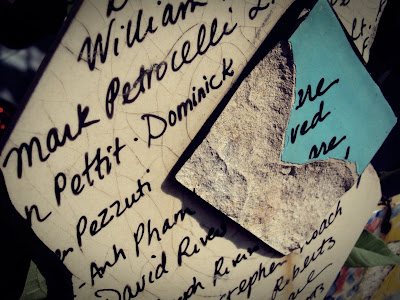 William
Mark Petrocelli
n Pettit · Dominick
Pezzuti
-Anh Pham
David River
ph River
Stephen Roach
Roberts
ere
ved
me,